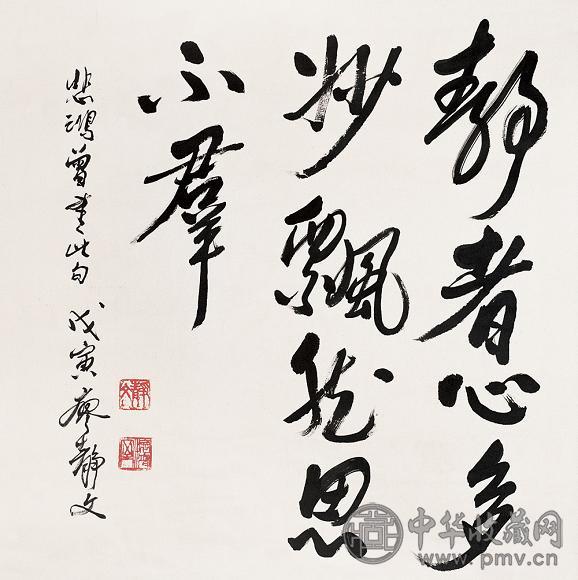 静者心多
妙飘然思
不群
悲鸿曾书此句 戊寅 廖静文
中华收藏网
www.pmv.cn